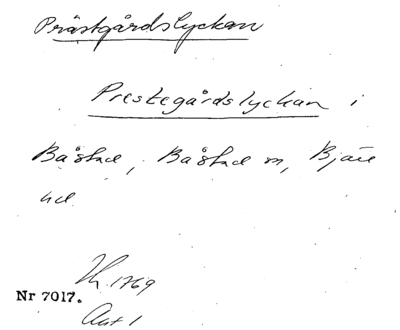 Prästgårdslyckan
Prestegårdslyckan i
Båstad, Båstad sn, Bjäre
hd
1769
Nr 7017.
Akt 1